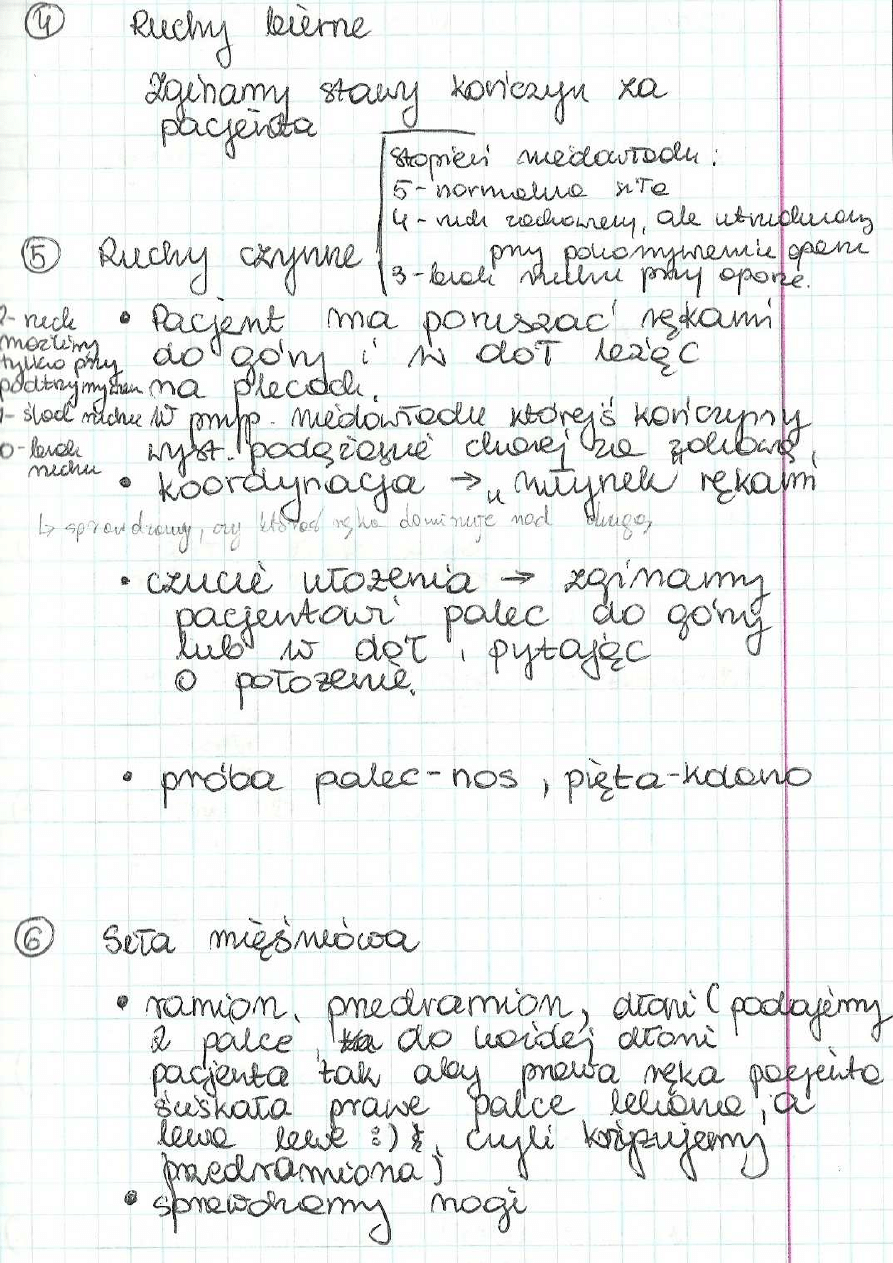 4 Ruchy bierne
zginamy stawy kończyn za
pacjenta
stopień niedowładu:
5 - normalna siła
4 - ruch zachowany, ale utrudniony
przy pokonywaniu oporu
3 - brak ruchu przy oporze.
5 Ruchy czynne
2 - ruch
możliwy
tylko przy
podtrzymywaniu
1 - ślad ruchu
0 - brak
ruchu
• Pacjent ma poruszać rękami
do góry i w dół leżąc
na plecach.
W przyp. niedowładu którejś kończyny
wyst. podążanie chorej za zdrową.
• koordynacja → „młynek rękami
↳ sprawdzamy, czy któraś ręka dominuje nad drugą
• czucie ułożenia → zginamy
pacjentowi palec do góry
lub w dół, pytając
o położenie.
• próba palec-nos, pięta-kolano
6 Siła mięśniowa
• ramion, przedramion, dłoni (podajemy
2 palce do każdej dłoni
pacjenta tak aby prawa ręka pacjenta
ściskała prawe palce lekarza, a
lewa lewe :) , czyli krzyżujemy
przedramiona)
• sprawdzamy nogi